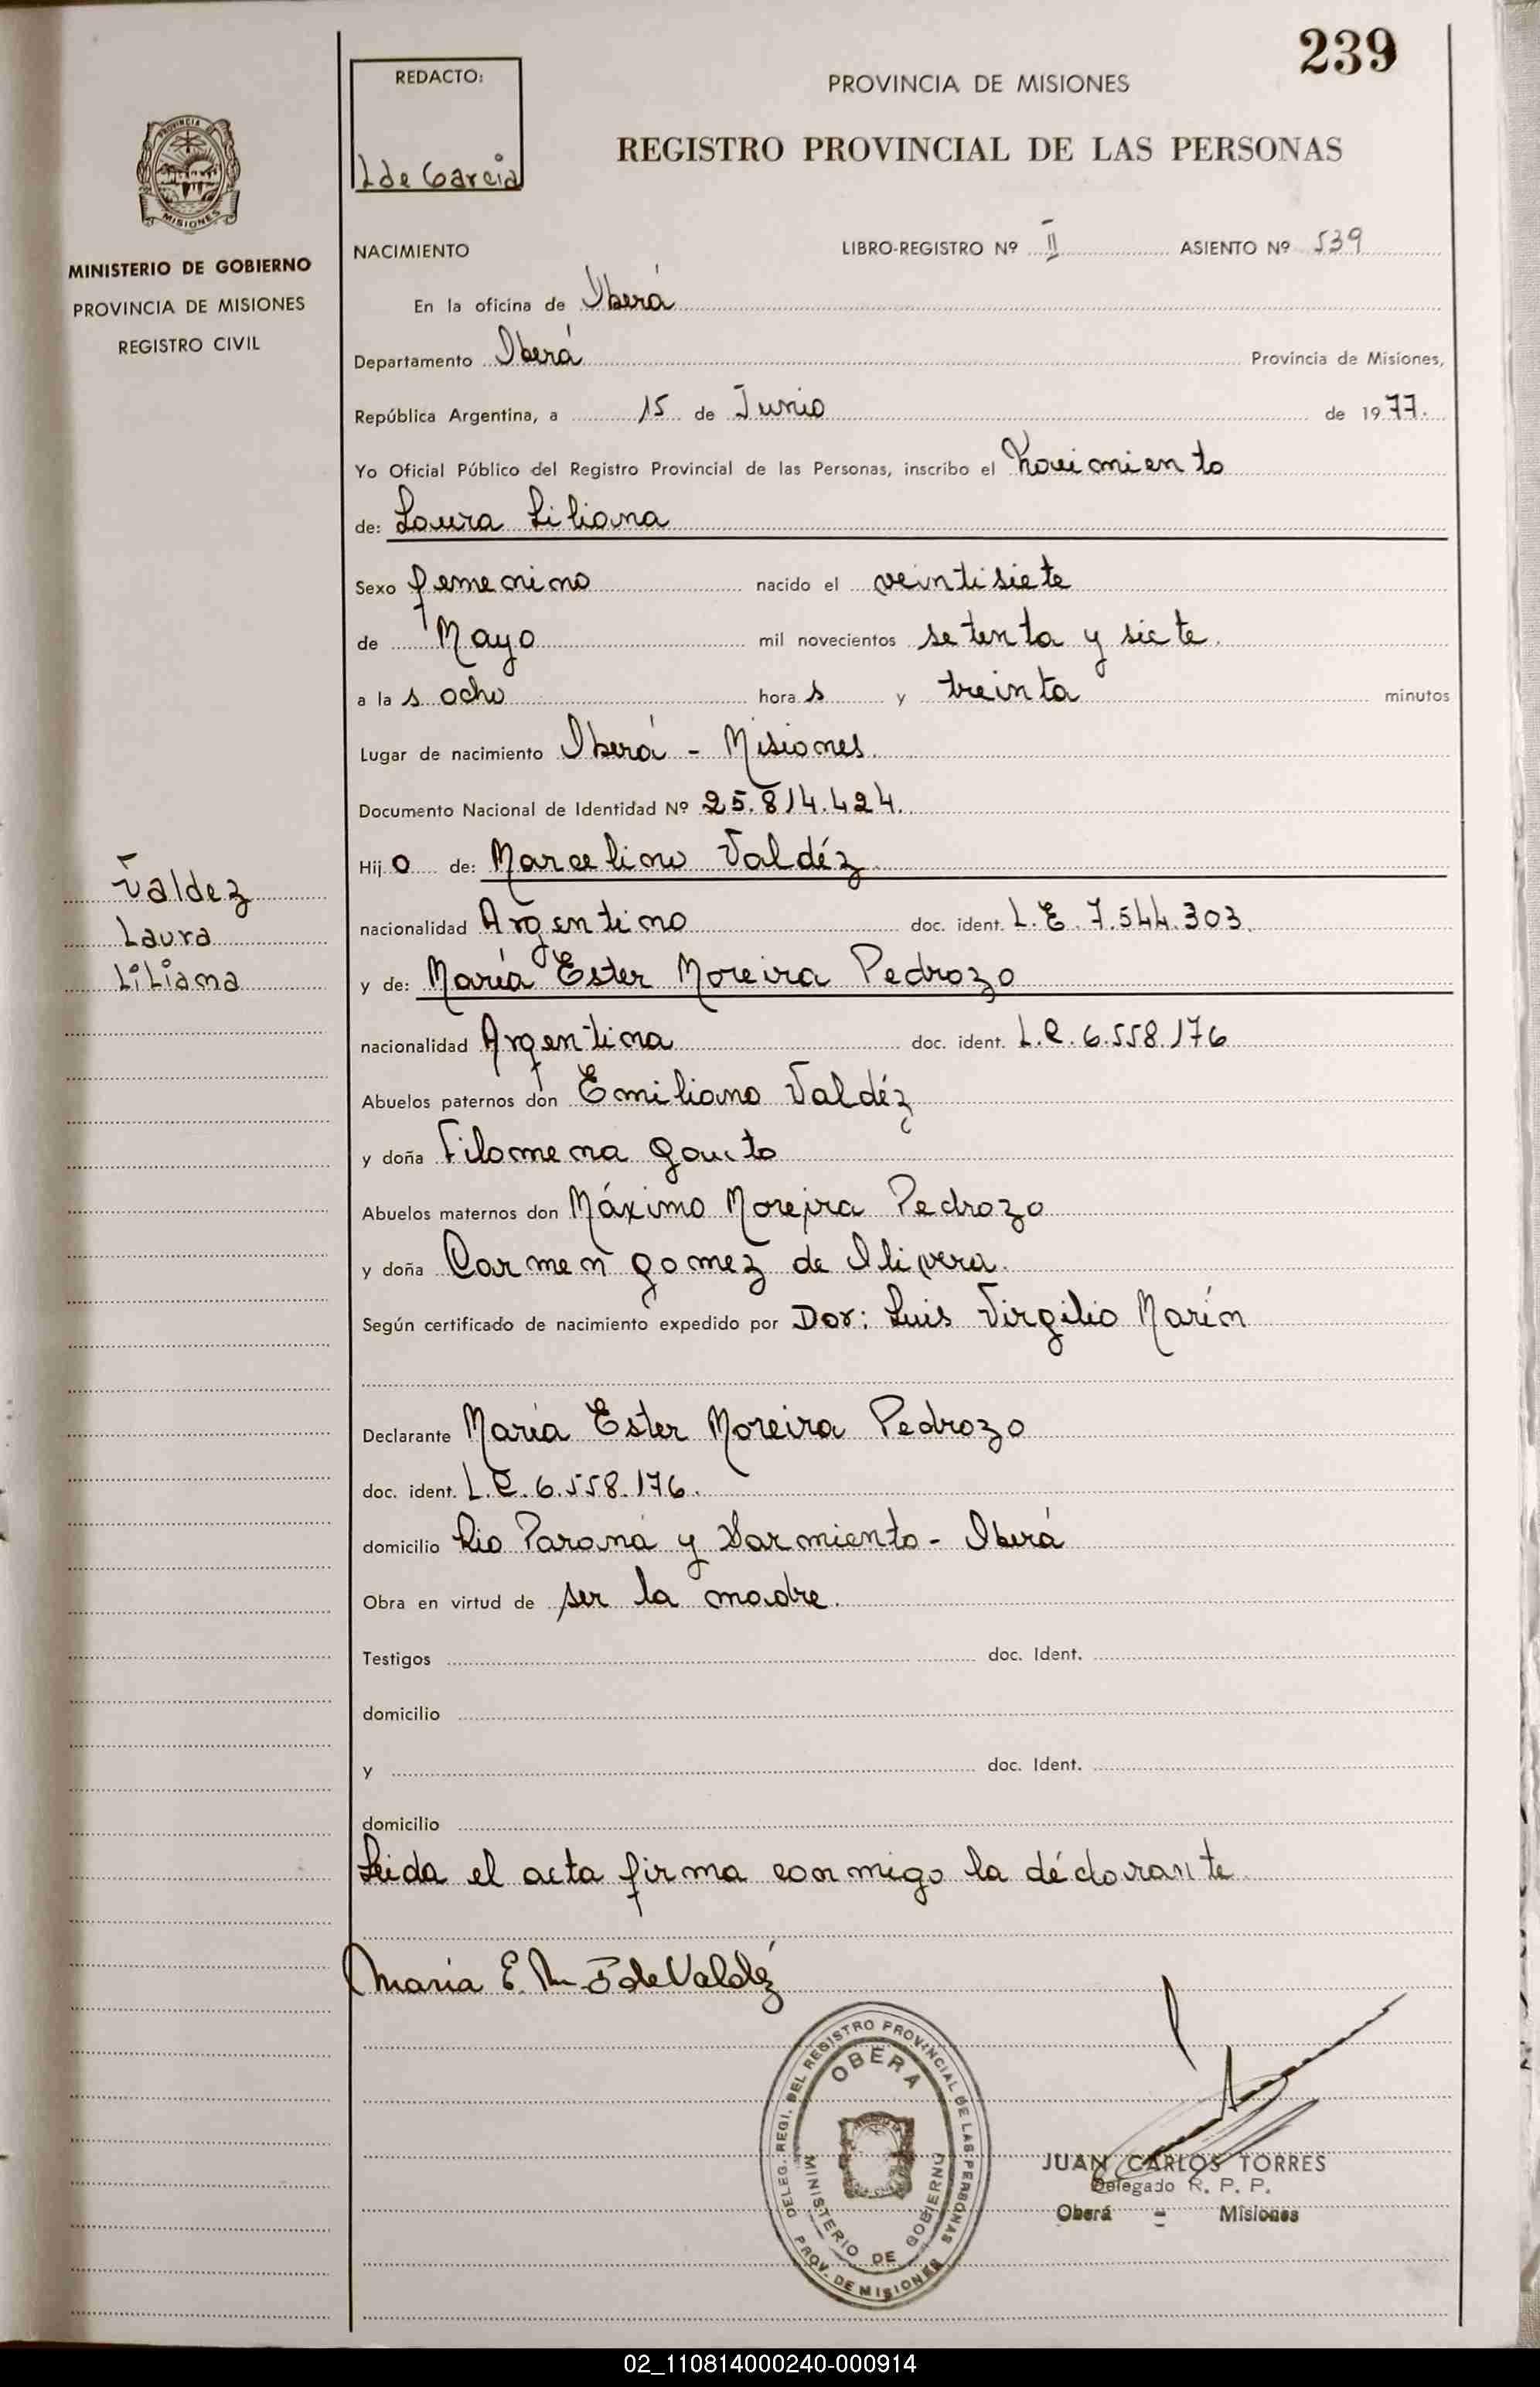 239
REDACTO:
L de Garcia
PROVINCIA DE MISIONES
REGISTRO PROVINCIAL DE LAS PERSONAS
PROVINCIA
MISIONES
MINISTERIO DE GOBIERNO
PROVINCIA DE MISIONES
REGISTRO CIVIL
NACIMIENTO LIBRO-REGISTRO Nº II ASIENTO Nº 539
En la oficina de Oberá
Departamento Oberá Provincia de Misiones,
República Argentina, a 15 de Junio de 1977.
Yo Oficial Público del Registro Provincial de las Personas, inscribo el Nacimiento
de: Laura Liliana
Sexo femenino nacido el veintisiete
de Mayo mil novecientos setenta y siete.
a la s ocho hora s y treinta minutos
Lugar de nacimiento Oberá - Misiones.
Documento Nacional de Identidad Nº 25.814.424.
Hij o de: Marcelino Valdéz
Valdez
Laura
Liliana
nacionalidad Argentino doc. ident. L.E. 7.544.303.
y de: María Ester Moreira Pedrozo
nacionalidad Argentina doc. ident. L.C. 6.558.176
Abuelos paternos don Emiliano Valdéz
y doña Filomena Gauto
Abuelos maternos don Máximo Moreira Pedrozo
y doña Carmen Gomez de Olivera.
Según certificado de nacimiento expedido por Dor: Luis Virgilio Marín
Declarante María Ester Moreira Pedrozo
doc. ident. L.C. 6.558.176.
domicilio Rio Paraná y Sarmiento - Oberá
Obra en virtud de ser la madre.
Testigos doc. Ident.
domicilio
y doc. Ident.
domicilio
Leida el acta firma conmigo la déclarante
Maria E. M. P de Valdéz
DELEG. REGI. DEL REGISTRO PROVINCIAL DE LAS PERSONAS
OBERA
MINISTERIO DE GOBIERNO
PROV. DE MISIONES
JUAN CARLOS TORRES
Delegado R. P. P.
Oberá - Misiones
02_110814000240-000914